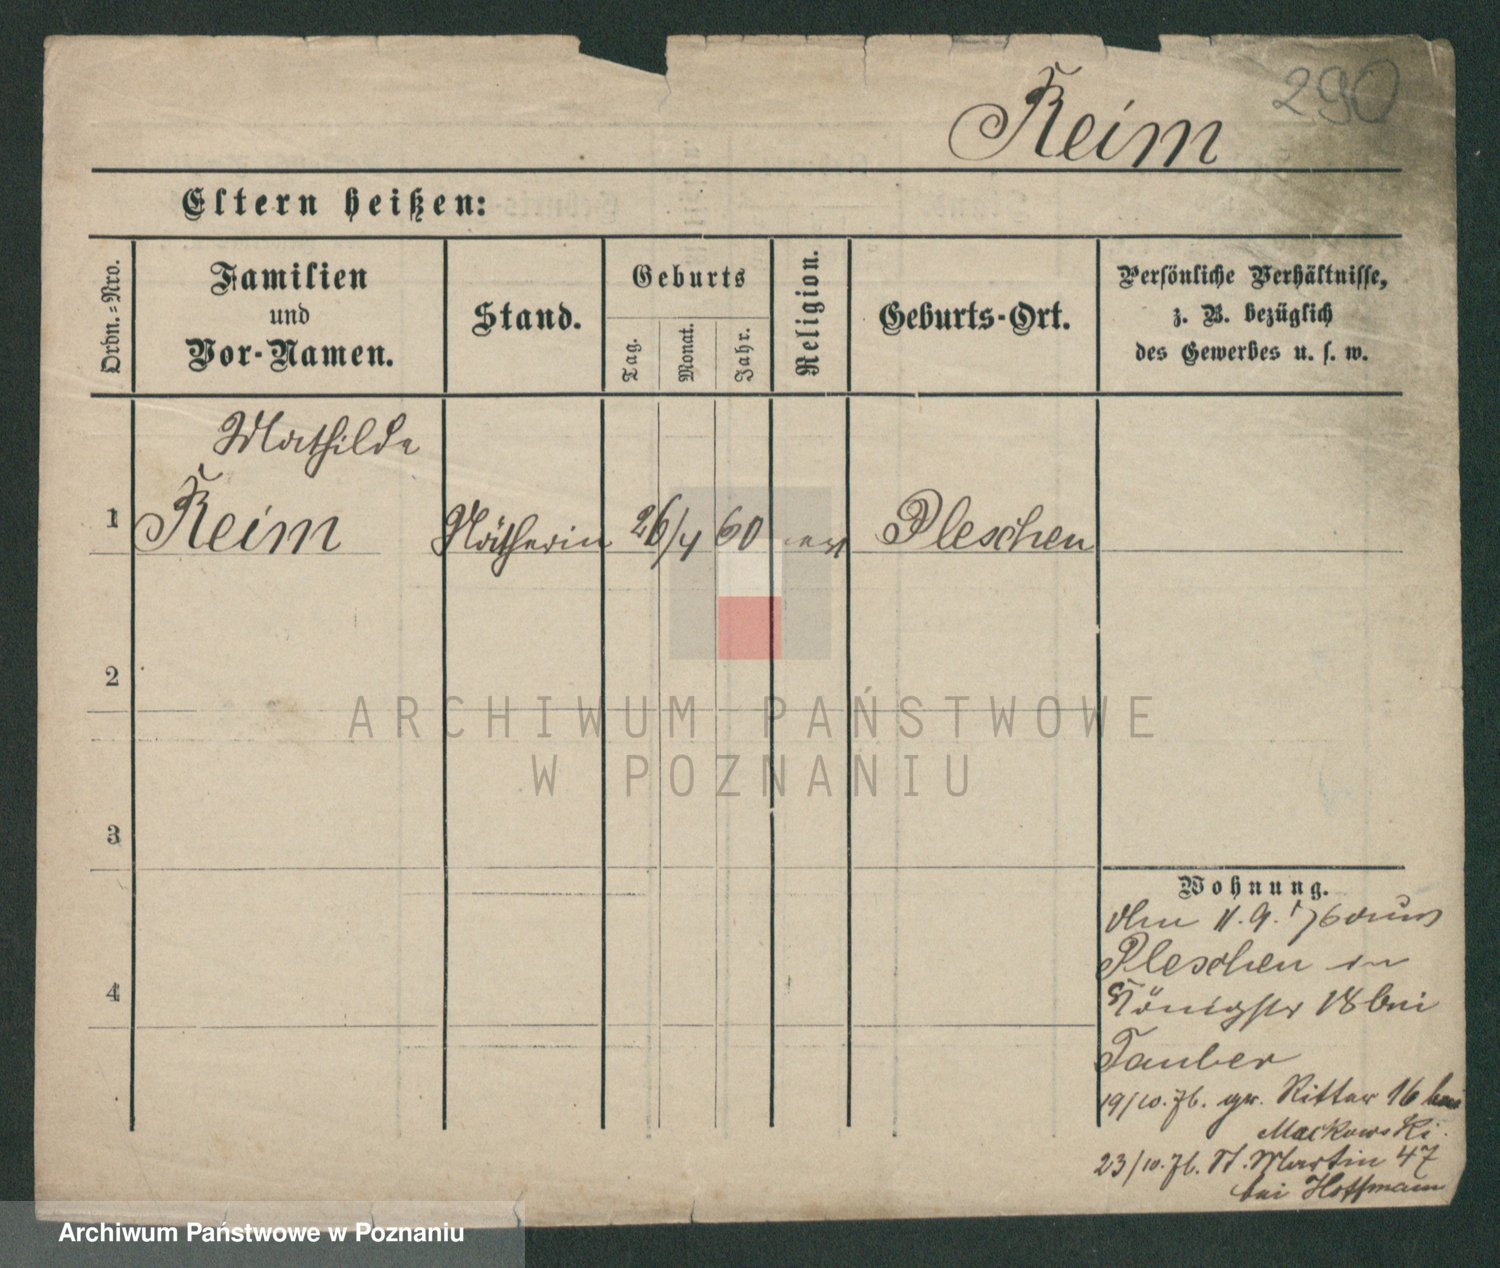 290
Reim
Eltern heißen:
Ordn.=Nro.
Familien
und
Vor-Namen.
Stand.
Geburts
Tag.
Monat.
Jahr.
Religion.
Geburts-Ort.
Persönliche Verhältnisse,
z. B. bezüglich
des Gewerbes u. s. w.
Mathilde
1 Reim Nätherin 26/4 60 Pleschen
2
3
4
Wohnung.
11.9.76 aus
Pleschen in
Königstr 18 bei
Tauber
19/10.76. gr. Ritter 16 bei
Mackowski.
23/10.76. St. Martin 47
bei Hoffmann
ARCHIWUM PAŃSTWOWE
W POZNANIU
Archiwum Państwowe w Poznaniu